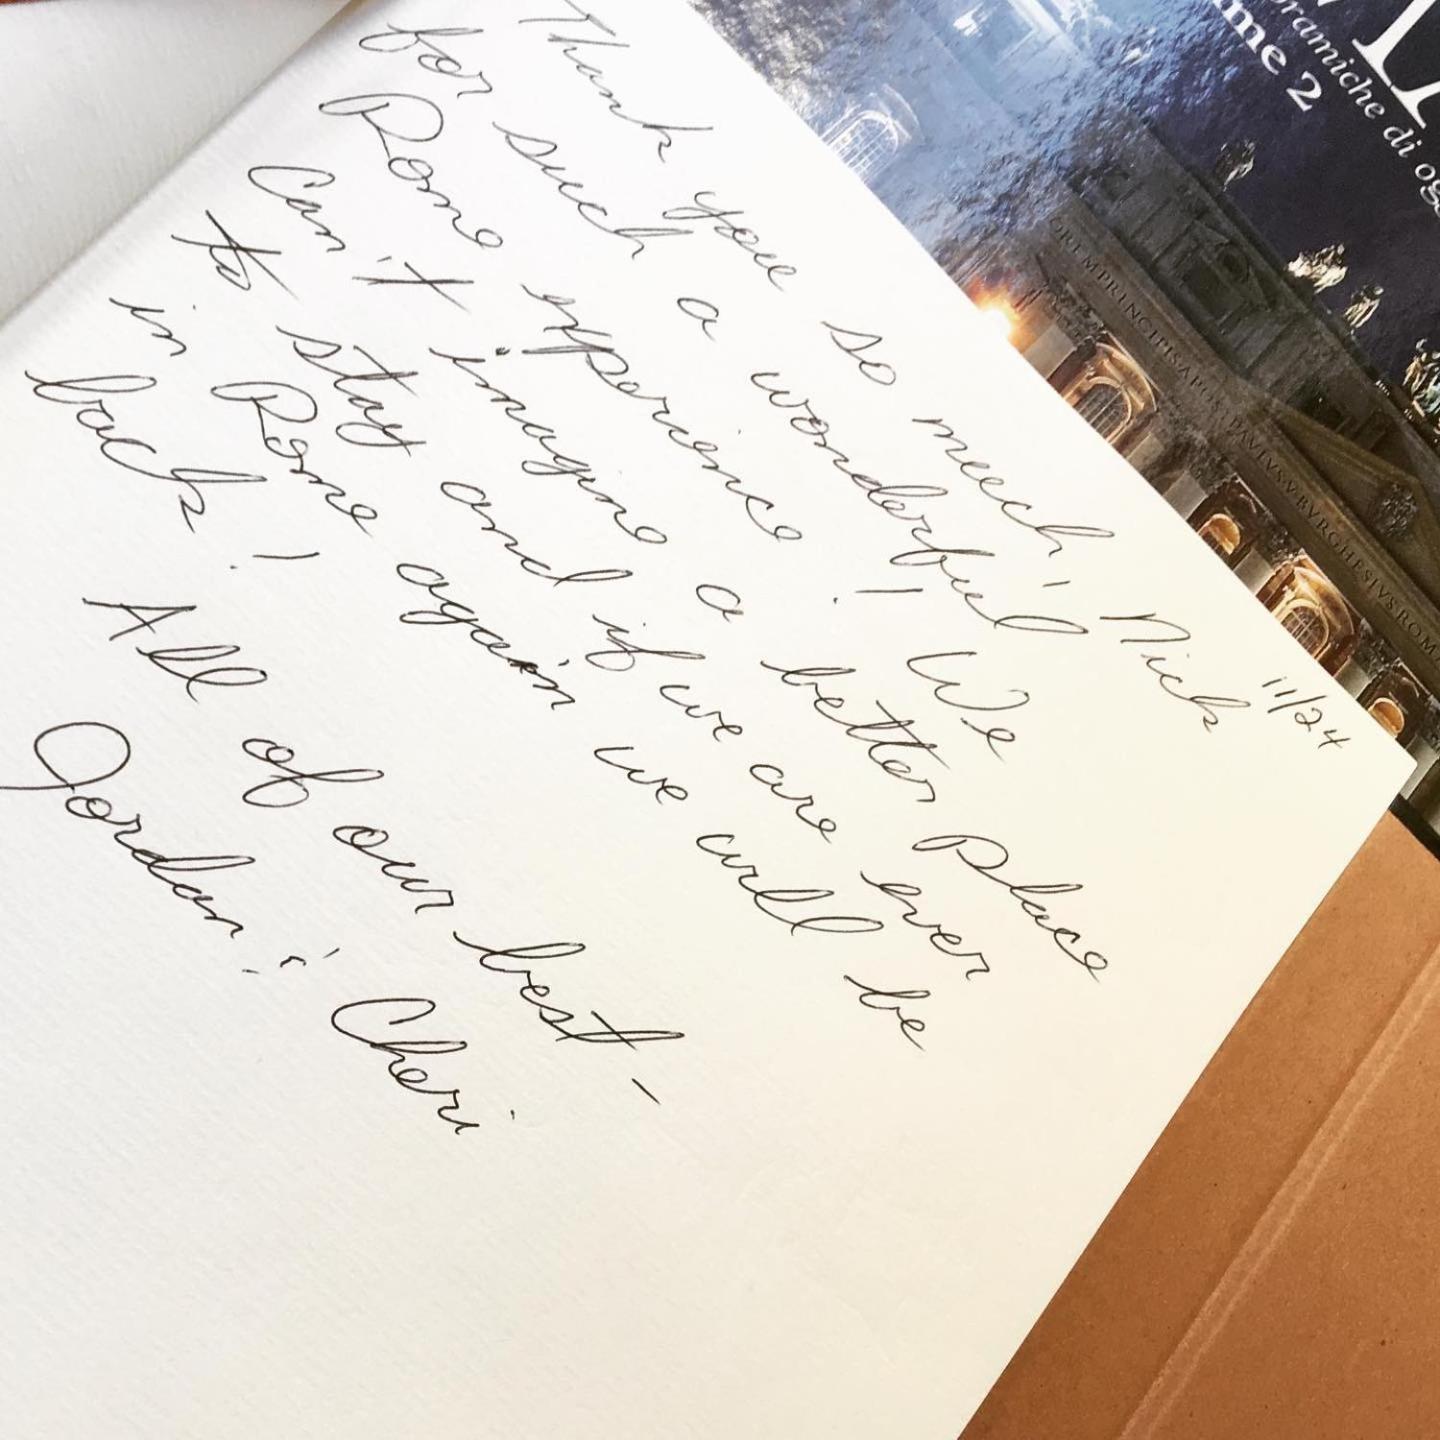 11/24
Thank you so much, Nick
for such a wonderful
Rome experience! We
Can't imagine a better place
to stay and if we are ever
in Rome again we will be
back!
All of our best -
Jordan & Cheri
me 2
oramiche di og
PRINCIPIS APOST PAVLVS V BVRGHESIVS ROMA